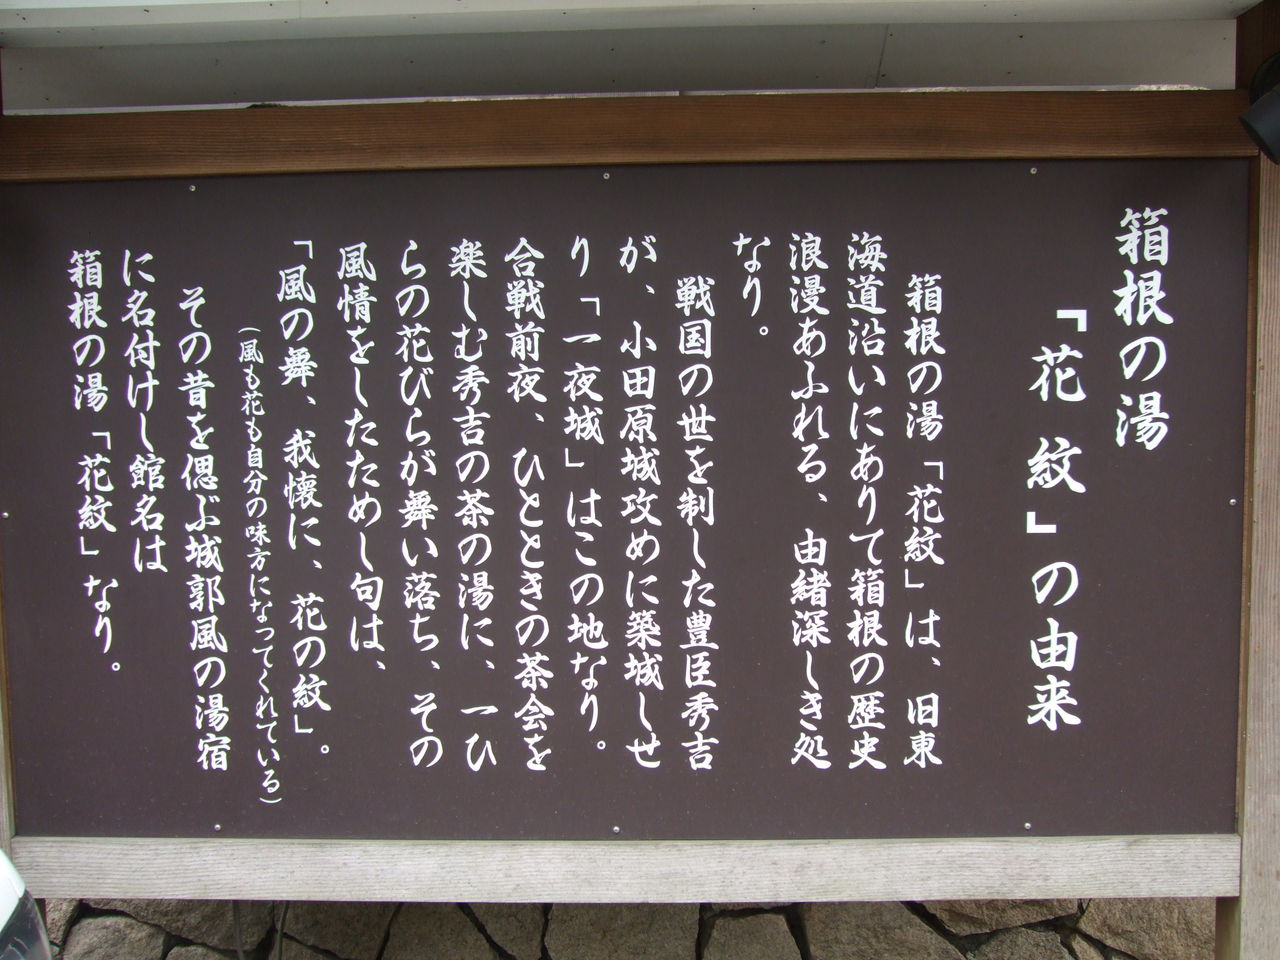 箱根の湯
「花紋」の由来
箱根の湯「花紋」は、旧東
海道沿いにありて箱根の歴史
浪漫あふれる、由緒深しき処
なり。
戦国の世を制した豊臣秀吉
が、小田原城攻めに築城しせ
り「一夜城」はこの地なり。
合戦前夜、ひとときの茶会を
楽しむ秀吉の茶の湯に、一ひ
らの花びらが舞い落ち、その
風情をしたためし句は、
「風の舞、我懐に、花の紋」。
(風も花も自分の味方になってくれている)
その昔を偲ぶ城郭風の湯宿
に名付けし館名は
箱根の湯「花紋」なり。